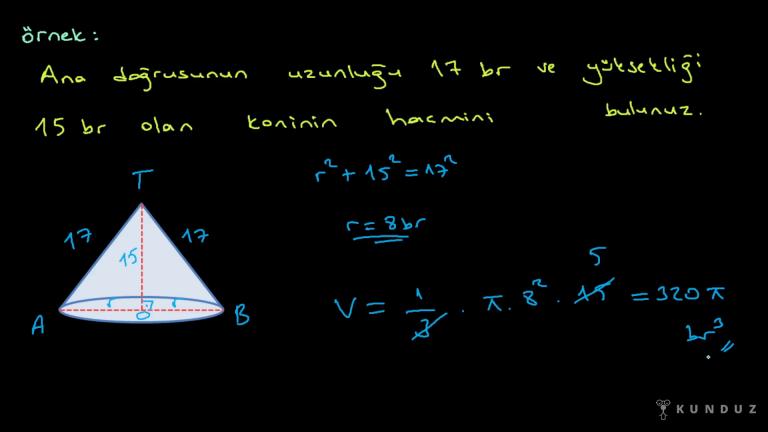 örnek:
Ana doğrusunun uzunluğu 17 br ve yüksekliği
15 br olan koninin hacmini bulunuz.
T
17 17
15
r r
A O B
r² + 15² = 17²
r = 8 br
5
V = 1/3 . π . 8² . 15 = 320 π
br³
KUNDUZ